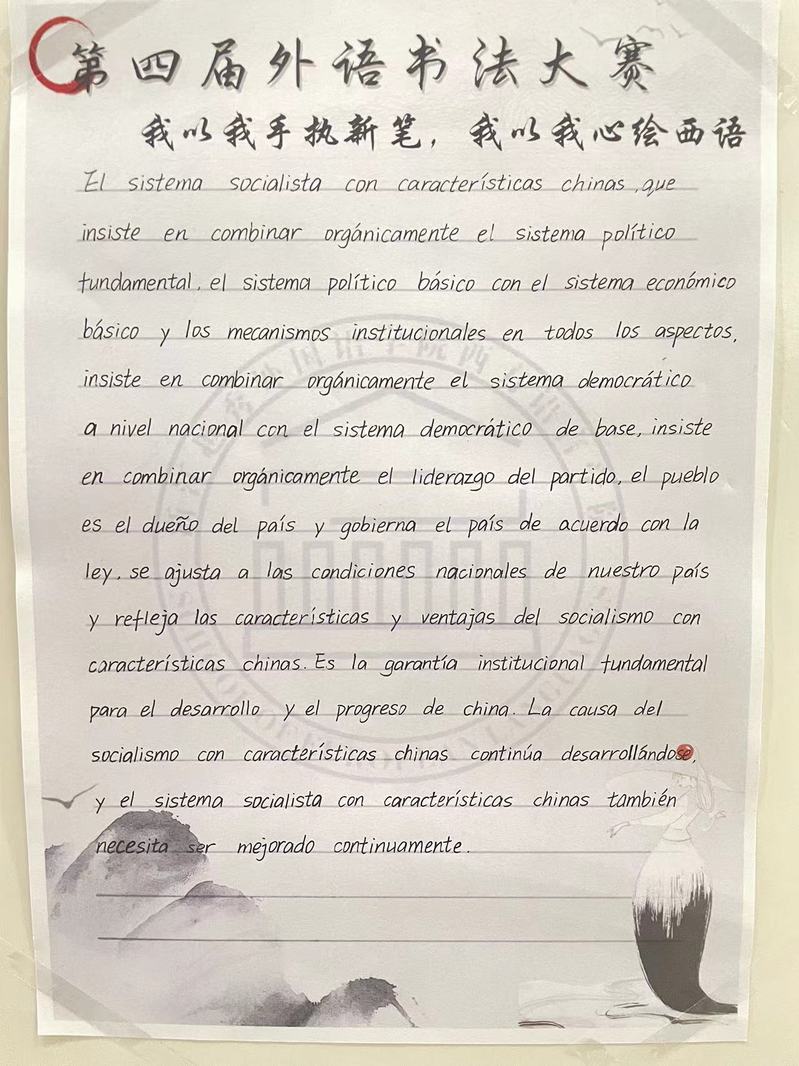 第四届外语书法大赛
我以我手执新笔，我以我心绘西语
El sistema socialista con características chinas, que
insiste en combinar orgánicamente el sistema político
fundamental, el sistema político básico con el sistema económico
básico y los mecanismos institucionales en todos los aspectos,
insiste en combinar orgánicamente el sistema democrático
a nivel nacional con el sistema democrático de base, insiste
en combinar orgánicamente el liderazgo del partido, el pueblo
es el dueño del país y gobierna el país de acuerdo con la
ley, se ajusta a las condiciones nacionales de nuestro país
y refleja las características y ventajas del socialismo con
características chinas. Es la garantía institucional fundamental
para el desarrollo y el progreso de china. La causa del
socialismo con características chinas continúa desarrollándose,
y el sistema socialista con características chinas también
necesita ser mejorado continuamente.